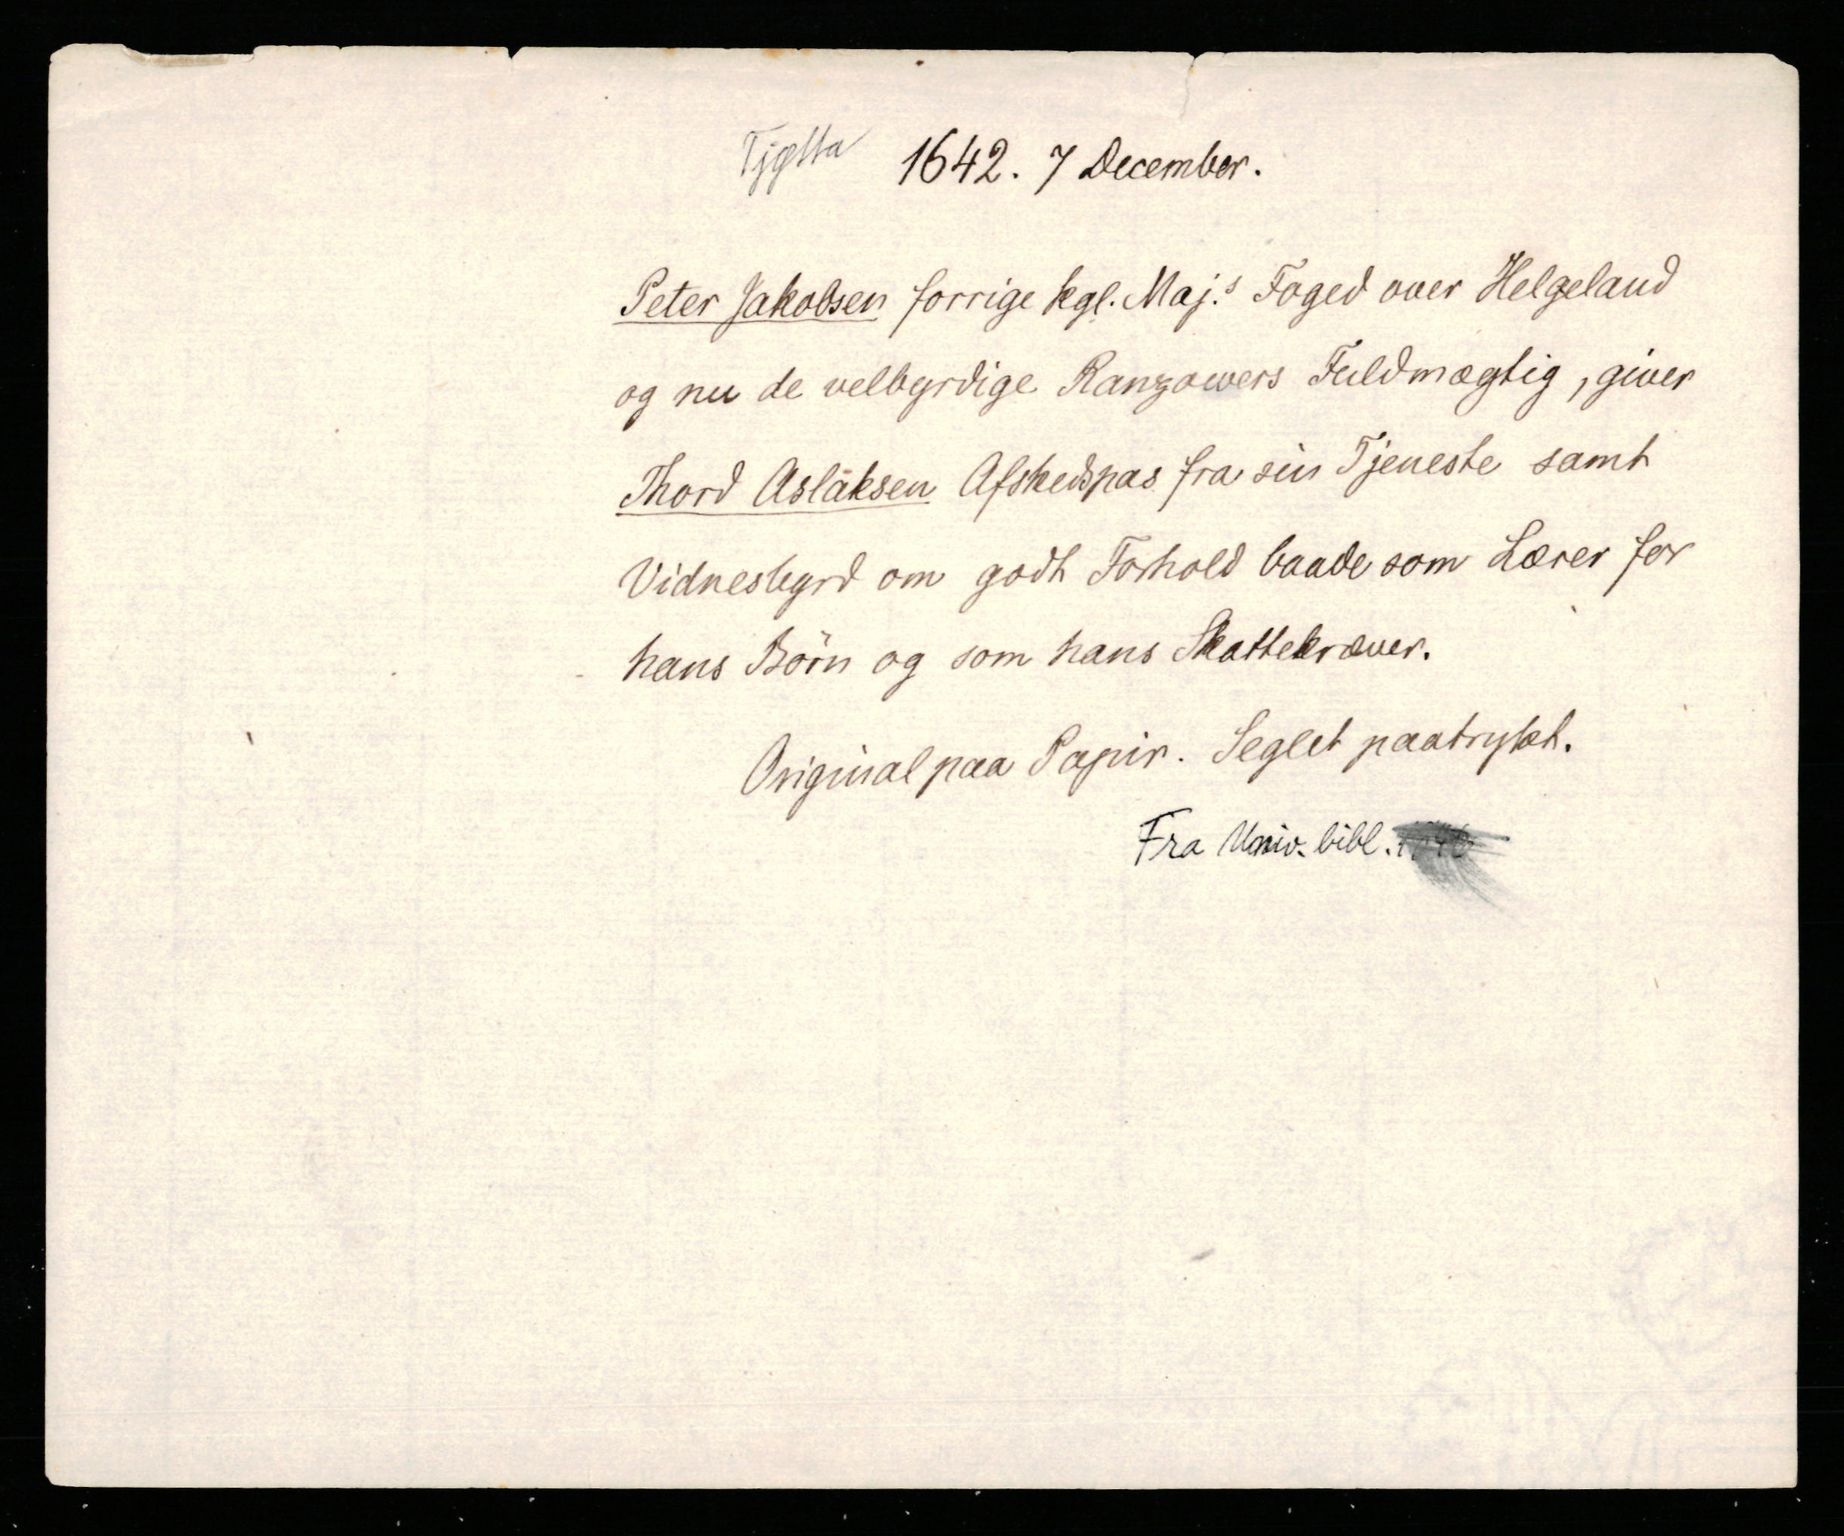 Tjøtta 1642. 7 December.
Peter Jakobsen forrige kgl. Maj.s Foged over Helgeland
og nu de velbyrdige Ranzowers Fuldmægtig, giver
Thord Aslaksen Afskedspas fra sin Tjeneste samt
Vidnesbyrd om godt Forhold baade som Lærer for
hans Börn og som hans Skattekræver.
Original paa Papir. Seglet paatrykt.
Fra Univ. bibl.